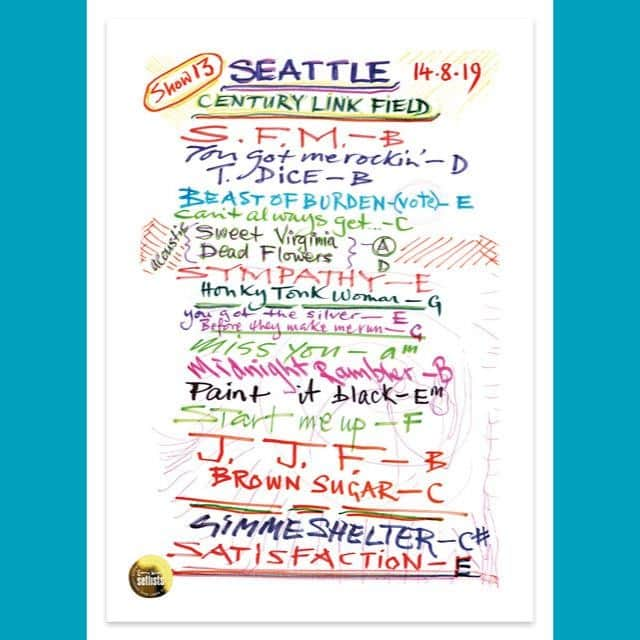 Show 13 SEATTLE 14.8.19
CENTURY LINK FIELD
S.F.M. – B
You got me rockin' – D
T. DICE – B
BEAST OF BURDEN – (vote) – E
Can't always get... – C
acoustic
Sweet Virginia – A
Dead Flowers D
SYMPATHY – E
Honky Tonk Woman – G
you got the silver – E
Before they make me run – G
Miss You – am
Midnight Rambler – B
Paint it black – Em
Start me up – F
J. J. F. – B
BROWN SUGAR – C
GIMME SHELTER – C#
SATISFACTION – E
setlists